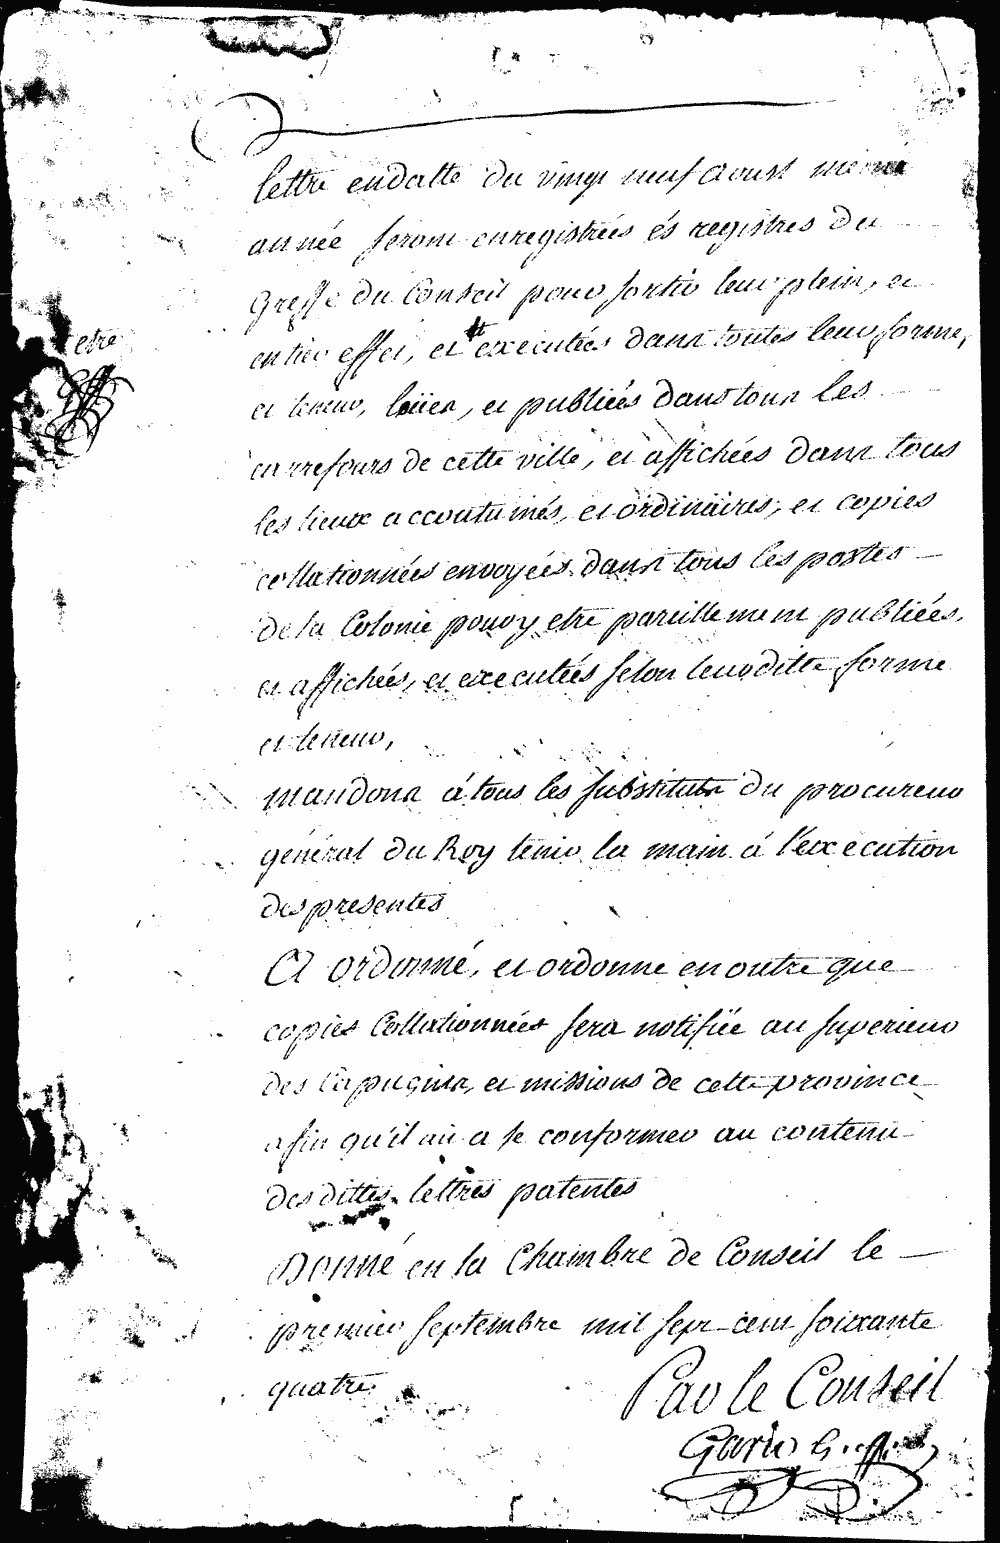 lettre en datte du vingt neuf aoust même
année seront enregistrées és registres du
Greffe du Conseil pour sortir leur plein, et
entier effet, et executées dans toutes leur forme,
etre
et teneur, lües, et publiées dans tous les
carrefours de cette ville, et affichées dans tous
les lieux accoutumés, et ordinaires, et copies
collationnées envoyées dans tous les postes
de la Colonie pour y etre pareillement publiées,
et affichées, et executées selon leur ditte forme
et teneur,
mandons á tous les substituts du procureur
général du Roy tenir la main á l'execution
des presentes
A ordonné, et ordonne en outre que
copies Collationnées sera notifiée au superieur
des Capucins, et missions de cette province
afin qu'il ait a se conformer au contenu
des dittes lettres patentes
Donné en la Chambre de Conseil le
premier septembre mil sept cent soixante
quatre.
Par le Conseil
Garic